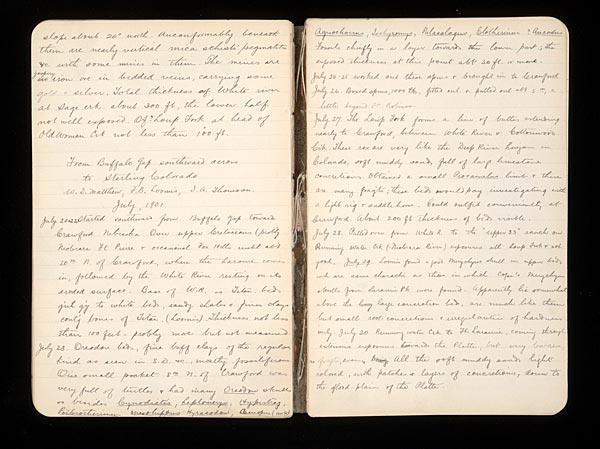 slope about 20° north Unconformably beneath
them are nearly vertical mica schists pegmatite
&c with some mines in them. The mines are
in iron ore in bedded veins, carrying some
gold & silver. Total thickness of White river
at Sage crk. about 300 ft, the lower half
not well exposed. Of Loup Fork at head of
Old Woman Crk not less than 100 ft.
From Buffalo Gap southward across
to Sterling Colorado
W. D. Matthew, F. B. Loomis, I. A. Thomson.
July, 1901
July 20-22 Started southward from Buffalo Gap toward
Crawford Nebraska Over upper Cretaceous (probly
Niobrara Ft. Pierre & occasional Fox Hills until abt
20 m N. of Crawford, where the Laramie comes
in, followed by the White River resting on its
eroded surface. Base of W.R. is Titan. beds,
to white bed, sandy shales & firm clays
only bones of Titan. (Loomis) Thickness not less
than 100 feet - probly more but not measured
July 23. Oreodon beds, fine buff clays of the regular
kind as seen in S.D. &c., mostly
One small pocket 8 m N. of Crawford was
very full of turtles & had many Oreodon skulls
as besides Cynodictis, Leptomeryx, Hypisodus,
Poebrotherium Mesohippus Hyracodon,
Agriochoerus, Ischyromys, Palaeolagus, Elotherium & Ancodus
Fossils chiefly in a layer toward the lower part; the
exposed thickness at this point abt 20 ft. or more.
July 20-25 worked out then &
brought in to Crawford.
July 26. Boxed specimens, 1000 lbs., fitted out & pulled out at 5 P.M., a
little beyond Ft Robinson
July 27. The Loup Fork forms a line of buttes, extending
nearly to Crawford, between White River & Cottonwood
Crk. These are very like the Deep River horizon in
Colorado, soft muddy sand, full of large limestone
concretions. Obtained a small Procamelus limb & there
are many fragts; these beds would pay investigating with
a light rig & saddle horse. Could outfit conveniently at
Crawford. About 200 ft thickness of beds visible.
July 28. Pulled over from White R. to the "upper 33" ranch on
Running Water Crk (=Niobrara River) exposures all Loup Fork & not
good. July 29. Loomis found a good Merychyus skull in upper beds
wh are same character as those in which Cope's Merychyus
skulls from Laramie Pk were found. Apparently lie somewhat
above the large concretion bed, are much like them
but small root concretions & irregularities of hardness
only July 30 Running water Crk to Ft. Laramie, coming through
extensive exposures towards the Platte, but very barren
of fossils, even, All the soft muddy sands light
colored, with patches & layers of concretions, down to
the flood plain of the Platte.